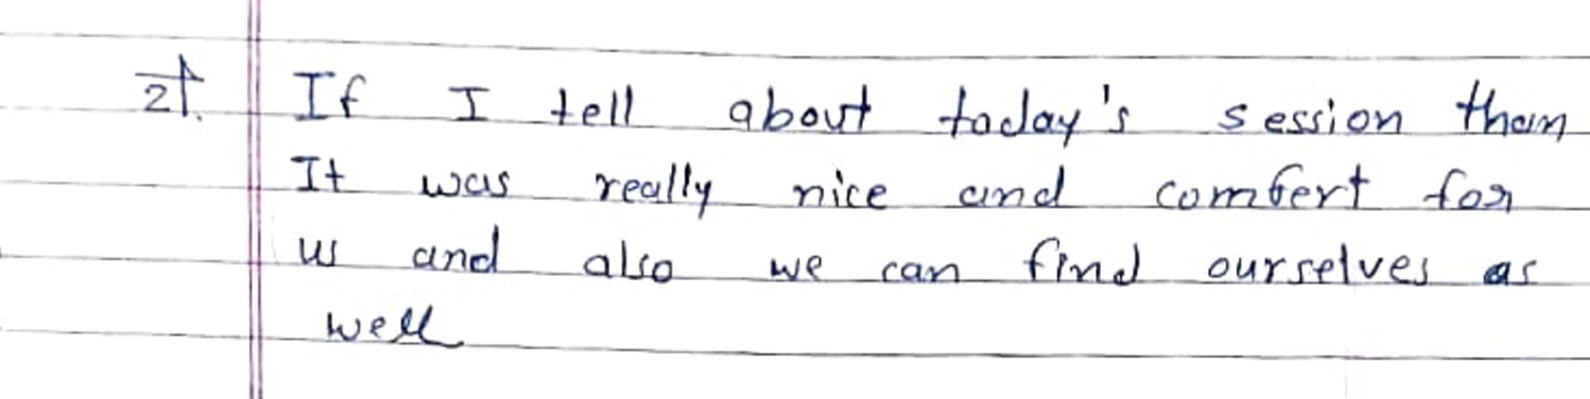 2. If I tell about today's session than
It was really nice and comfert for
us and also we can find ourselves as
well